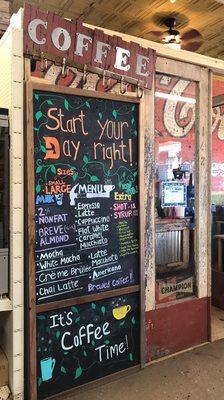 COFFEE
Start your
Day right!
Sizes
SMALL
LARGE
MENU
Extra
HOT-$
SYRUP
MILK
2%
NONFAT
BREVE
ALMOND
Espresso
Latte
Cappuccino
Flat White
Macchiato
WHITE
Caramel
Macchiato
Mocha
White Mocha
Crème Brûlée
Chai Latte
Latte
Macchiato
Americano
Brewed Coffee
It's
Coffee
Time!
CHAMPION